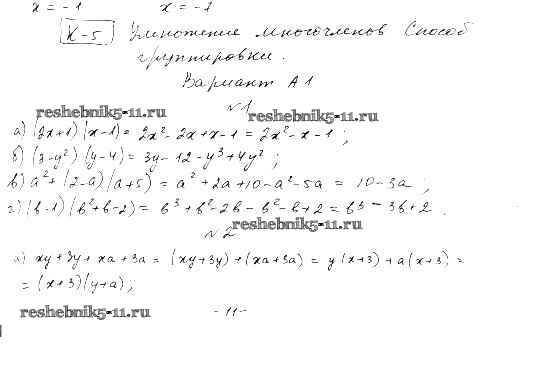 x = -1 x = -1
К-5 Умножение многочленов Способ
группировки.
Вариант А1
reshebnik5-11.ru №1 reshebnik5-11.ru
а) (2x+1)(x-1) = 2x² - 2x + x - 1 = 2x² - x - 1;
б) (3-y²)(y-4) = 3y - 12 - y³ + 4y²;
в) a² + (2-a)(a+5) = a² + 2a + 10 - a² - 5a = 10 - 3a;
г) (b-1)(b²+b-2) = b³ + b² - 2b - b² - b + 2 = b³ - 3b + 2.
№2 reshebnik5-11.ru
а) xy + 3y + xa + 3a = (xy + 3y) + (xa + 3a) = y(x+3) + a(x+3) =
= (x+3)(y+a);
reshebnik5-11.ru -11-